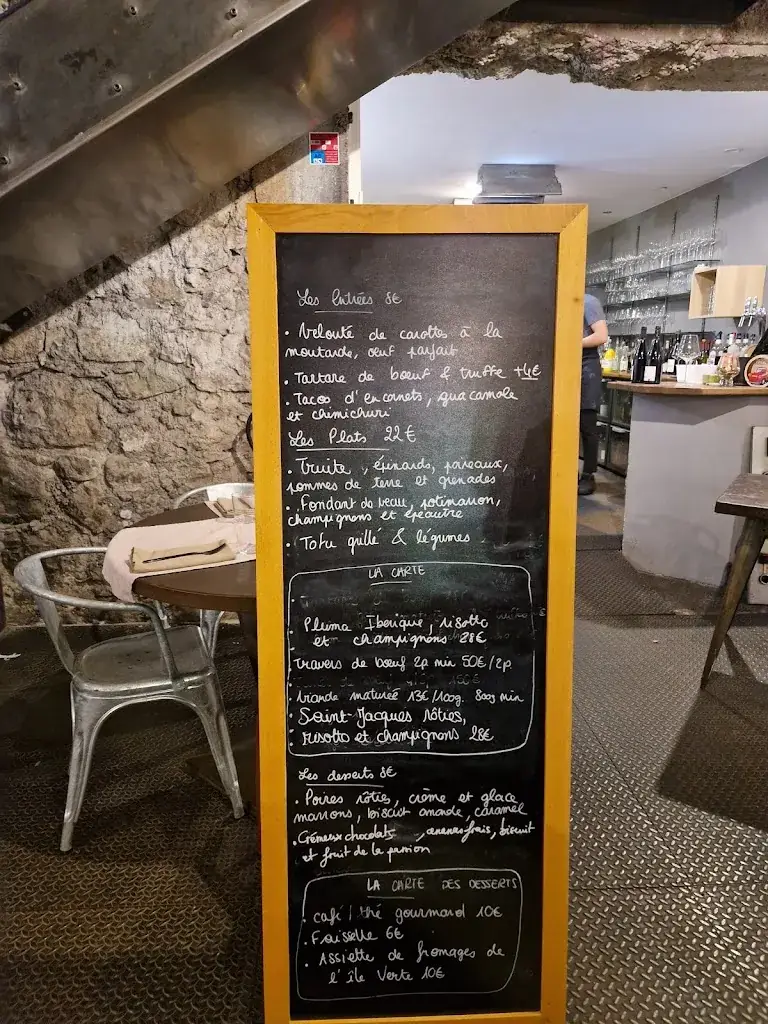 Les Entrées 8€
• Velouté de carottes à la
moutarde, œuf parfait
• Tartare de bœuf & truffe +4€
• Tacos d'encornets, guacamole
et chimichuri
Les Plats 22€
• Truite, épinards, poireaux,
pommes de terre et grenades
• Fondant de veau, potimarron,
champignons et épeautre
• Tofu grillé & légumes
LA CARTE
Pluma Iberique, risotto
et champignons 28€
Travers de bœuf 2p min 50€/2p
• Viande maturée 13€/100g. 800g min
• Saint-Jacques rôties,
risotto et champignons 28€
Les desserts 8€
• Poires rôties, crème et glace
marrons, biscuit amande, caramel
• Crémeux chocolats, ananas frais, biscuit
et fruit de la passion
LA CARTE DES DESSERTS
• café / thé gourmand 10€
• Faisselle 6€
• Assiette de fromages de
l'île Verte 10€